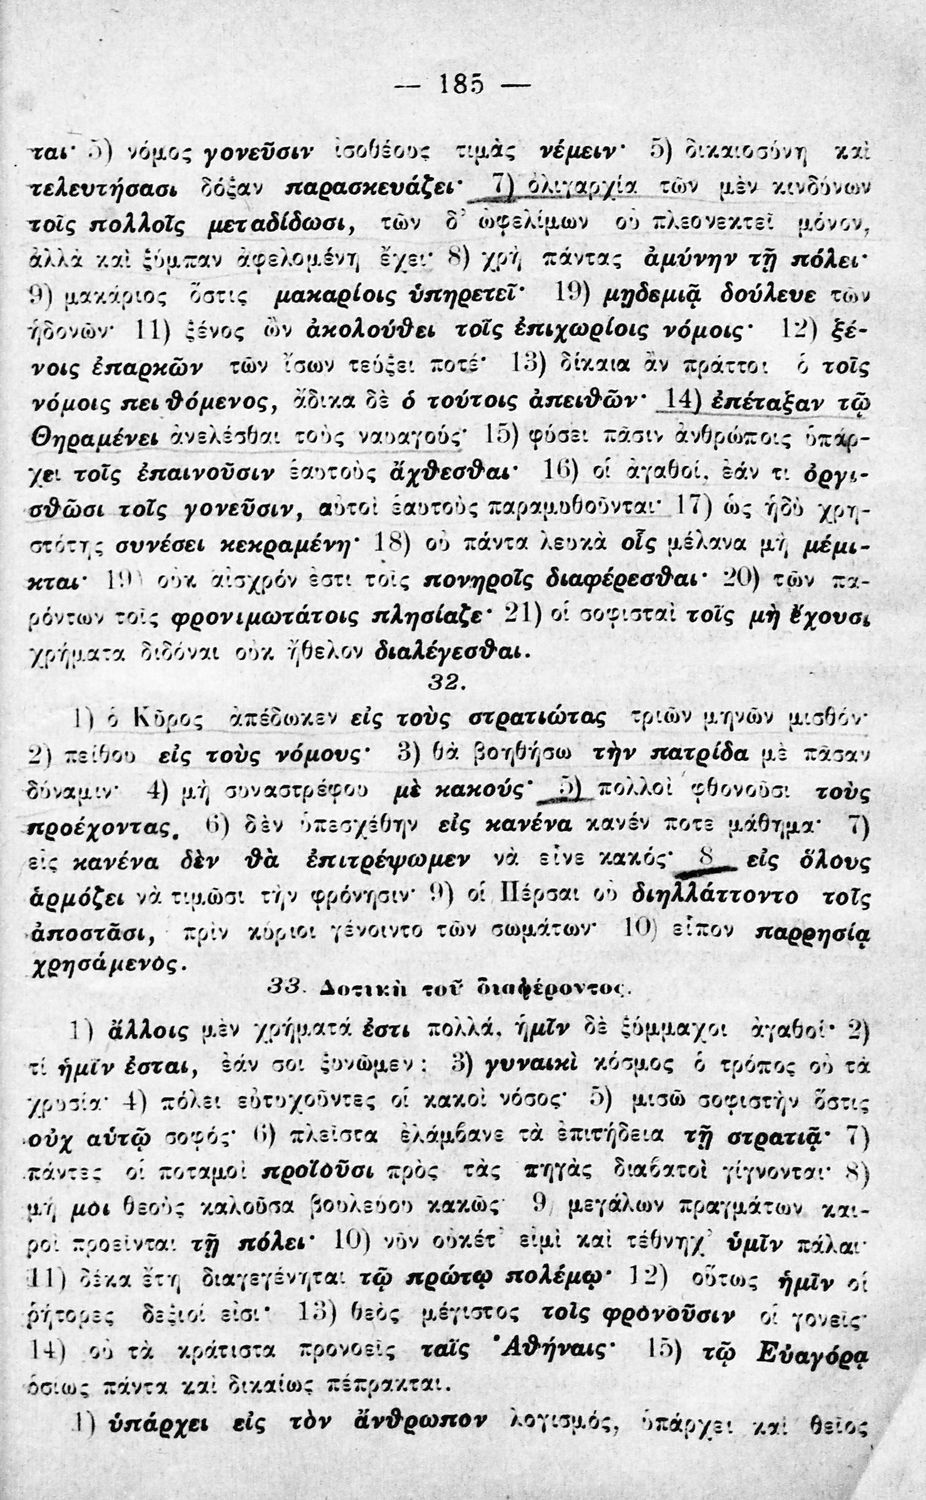 — 185 —
ται· 5) νόμος γονεῦσιν ἰσοθέους τιμὰς νέμειν· 5) δικαιοσύνη καὶ
τελευτήσασι δόξαν παρασκευάζει· 7) ὀλιγαρχία τῶν μὲν κινδύνων
τοῖς πολλοῖς μεταδίδωσι, τῶν δ᾽ ὠφελίμων οὐ πλεονεκτεῖ μόνον,
ἀλλὰ καὶ ξύμπαν ἀφελομένη ἔχει· 8) χρὴ πάντας ἀμύνην τῇ πόλει·
9) μακάριος ὅστις μακαρίοις ὑπηρετεῖ· 19) μηδεμιᾷ δούλευε τῶν
ἡδονῶν· 11) ξένος ὢν ἀκολούθει τοῖς ἐπιχωρίοις νόμοις· 12) ξέ-
νοις ἐπαρκῶν τῶν ἴσων τεύξει ποτέ· 13) δίκαια ἂν πράττοι ὁ τοῖς
νόμοις πειθόμενος, ἄδικα δὲ ὁ τούτοις ἀπειθῶν· 14) ἐπέταξαν τῷ
Θηραμένει ἀνελέσθαι τοὺς ναυαγούς· 15) φύσει πᾶσιν ἀνθρώποις ὑπάρ-
χει τοῖς ἐπαινοῦσιν ἑαυτοὺς ἄχθεσθαι· 16) οἱ ἀγαθοί, ἐάν τι ὀργι-
σθῶσι τοῖς γονεῦσιν, αὐτοὶ ἑαυτοὺς παραμυθοῦνται· 17) ὡς ἡδὺ χρη-
στότης συνέσει κεκραμένη· 18) οὐ πάντα λευκὰ οἷς μέλανα μὴ μέμι-
κται· 19) οὐκ αἰσχρόν ἐστι τοῖς πονηροῖς διαφέρεσθαι· 20) τῶν πα-
ρόντων τοῖς φρονιμωτάτοις πλησίαζε· 21) οἱ σοφισταὶ τοῖς μὴ ἔχουσι
χρήματα διδόναι οὐκ ἤθελον διαλέγεσθαι.
32.
1) ὁ Κῦρος ἀπέδωκεν εἰς τοὺς στρατιώτας τριῶν μηνῶν μισθόν·
2) πείθου εἰς τοὺς νόμους· 3) θὰ βοηθήσω τὴν πατρίδα μὲ πᾶσαν
δύναμιν· 4) μὴ συναστρέφου μὲ κακούς· 5) πολλοὶ φθονοῦσι τοὺς
προέχοντας. 6) δὲν ὑπεσχέθην εἰς κανένα κανέν ποτε μάθημα· 7)
εἰς κανένα δὲν θὰ ἐπιτρέψωμεν νὰ εἶνε κακός· 8 εἰς ὅλους
ἁρμόζει νὰ τιμῶσι τὴν φρόνησιν· 9) οἱ Πέρσαι οὐ διηλλάττοντο τοῖς
ἀποστᾶσι, πρὶν κύριοι γένοιντο τῶν σωμάτων· 10) εἶπον παρρησίᾳ
χρησάμενος.
33. Δοτικὴ τοῦ διαφέροντος.
1) ἄλλοις μὲν χρήματά ἐστι πολλά, ἡμῖν δὲ ξύμμαχοι ἀγαθοί· 2)
τί ἡμῖν ἔσται, ἐάν σοι ξυνῶμεν; 3) γυναικὶ κόσμος ὁ τρόπος οὐ τὰ
χρυσία· 4) πόλει εὐτυχοῦντες οἱ κακοὶ νόσος· 5) μισῶ σοφιστὴν ὅστις
οὐχ αὑτῷ σοφός· 6) πλεῖστα ἐλάμβανε τὰ ἐπιτήδεια τῇ στρατιᾷ· 7)
πάντες οἱ ποταμοὶ προϊοῦσι πρὸς τὰς πηγὰς διαβατοὶ γίγνονται· 8)
μή μοι θεοὺς καλοῦσα βουλεύου κακῶς· 9) μεγάλων πραγμάτων και-
ροὶ προεῖνται τῇ πόλει· 10) νῦν οὐκέτ᾽ εἰμὶ καὶ τέθνηχ᾽ ὑμῖν πάλαι·
11) δέκα ἔτη διαγεγένηται τῷ πρώτῳ πολέμῳ· 12) οὕτως ἡμῖν οἱ
ῥήτορες δεξιοί εἰσι· 13) θεὸς μέγιστος τοῖς φρονοῦσιν οἱ γονεῖς·
14) οὐ τὰ κράτιστα προνοεῖς ταῖς Ἀθήναις· 15) τῷ Εὐαγόρᾳ
ὁσίως πάντα καὶ δικαίως πέπρακται.
1) ὑπάρχει εἰς τὸν ἄνθρωπον λογισμός, ὑπάρχει καὶ θεῖος